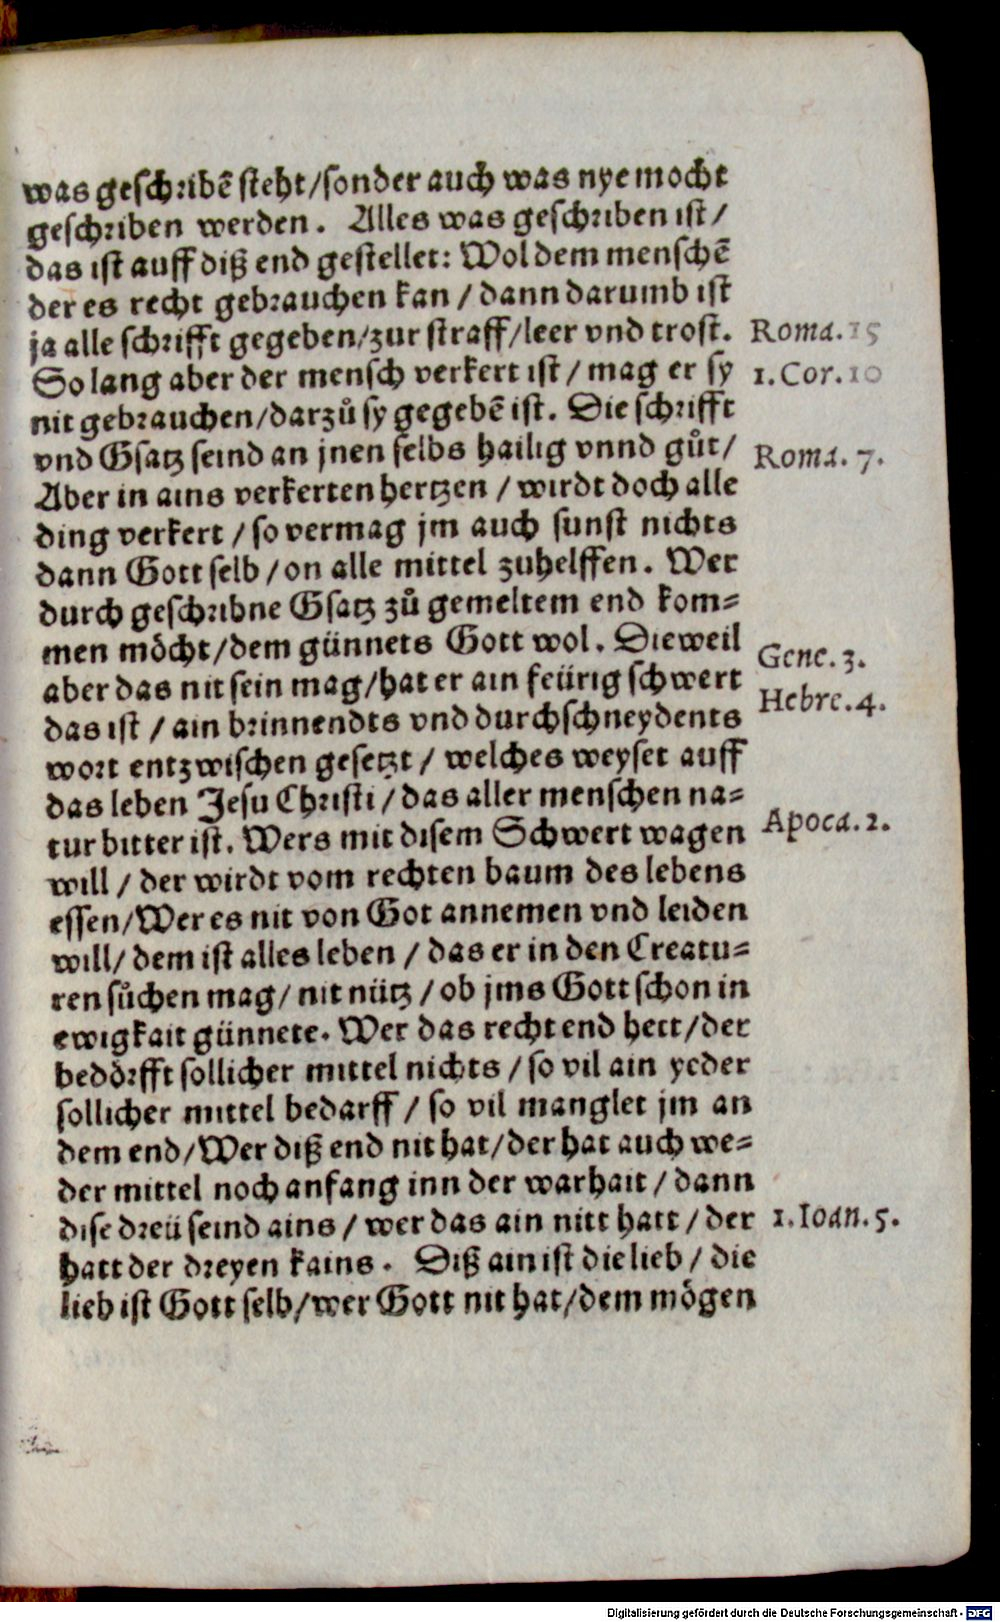 was geschribẽ steht/sonder auch was nye mocht
geschriben werden. Alles was geschriben ist/
das ist auff diß end gestellet: Wol dem menschẽ
der es recht gebrauchen kan / dann darumb ist
ja alle schrifft gegeben/zur straff/leer vnd trost. Roma. 15
So lang aber der mensch verkert ist / mag er sy 1. Cor. 10
nit gebrauchen/darzů sy gegebẽ ist. Die schrifft
vnd Gsatz seind an jnen selbs hailig vnnd gůt/ Roma. 7.
Aber in ains verkerten hertzen / wirdt doch alle
ding verkert / so vermag jm auch sunst nichts
dann Gott selb / on alle mittel zuhelffen. Wer
durch geschribne Gsatz zů gemeltem end kom=
men möcht/dem günnets Gott wol. Dieweil
aber das nit sein mag/hat er ain feürig schwert Gene. 3.
das ist / ain brinnendts vnd durchschneydents Hebre. 4.
wort entzwischen gesetzt / welches weyset auff
das leben Jesu Christi / das aller menschen na=
tur bitter ist. Wers mit disem Schwert wagen Apoca. 2.
will / der wirdt vom rechten baum des lebens
essen/Wer es nit von Got annemen vnd leiden
will/ dem ist alles leben / das er in den Creatu=
ren sůchen mag/ nit nütz / ob jms Gott schon in
ewigkait günnete. Wer das recht end hett/der
bedörfft sollicher mittel nichts / so vil ain yeder
sollicher mittel bedarff / so vil manglet jm an
dem end/Wer diß end nit hat/der hat auch we=
der mittel noch anfang inn der warhait / dann
dise dreü seind ains / wer das ain nitt hatt / der 1. Ioan. 5.
hatt der dreyen kains. Diß ain ist die lieb / die
lieb ist Gott selb/wer Gott nit hat/dem mögen
Digitalisierung gefördert durch die Deutsche Forschungsgemeinschaft - DFG